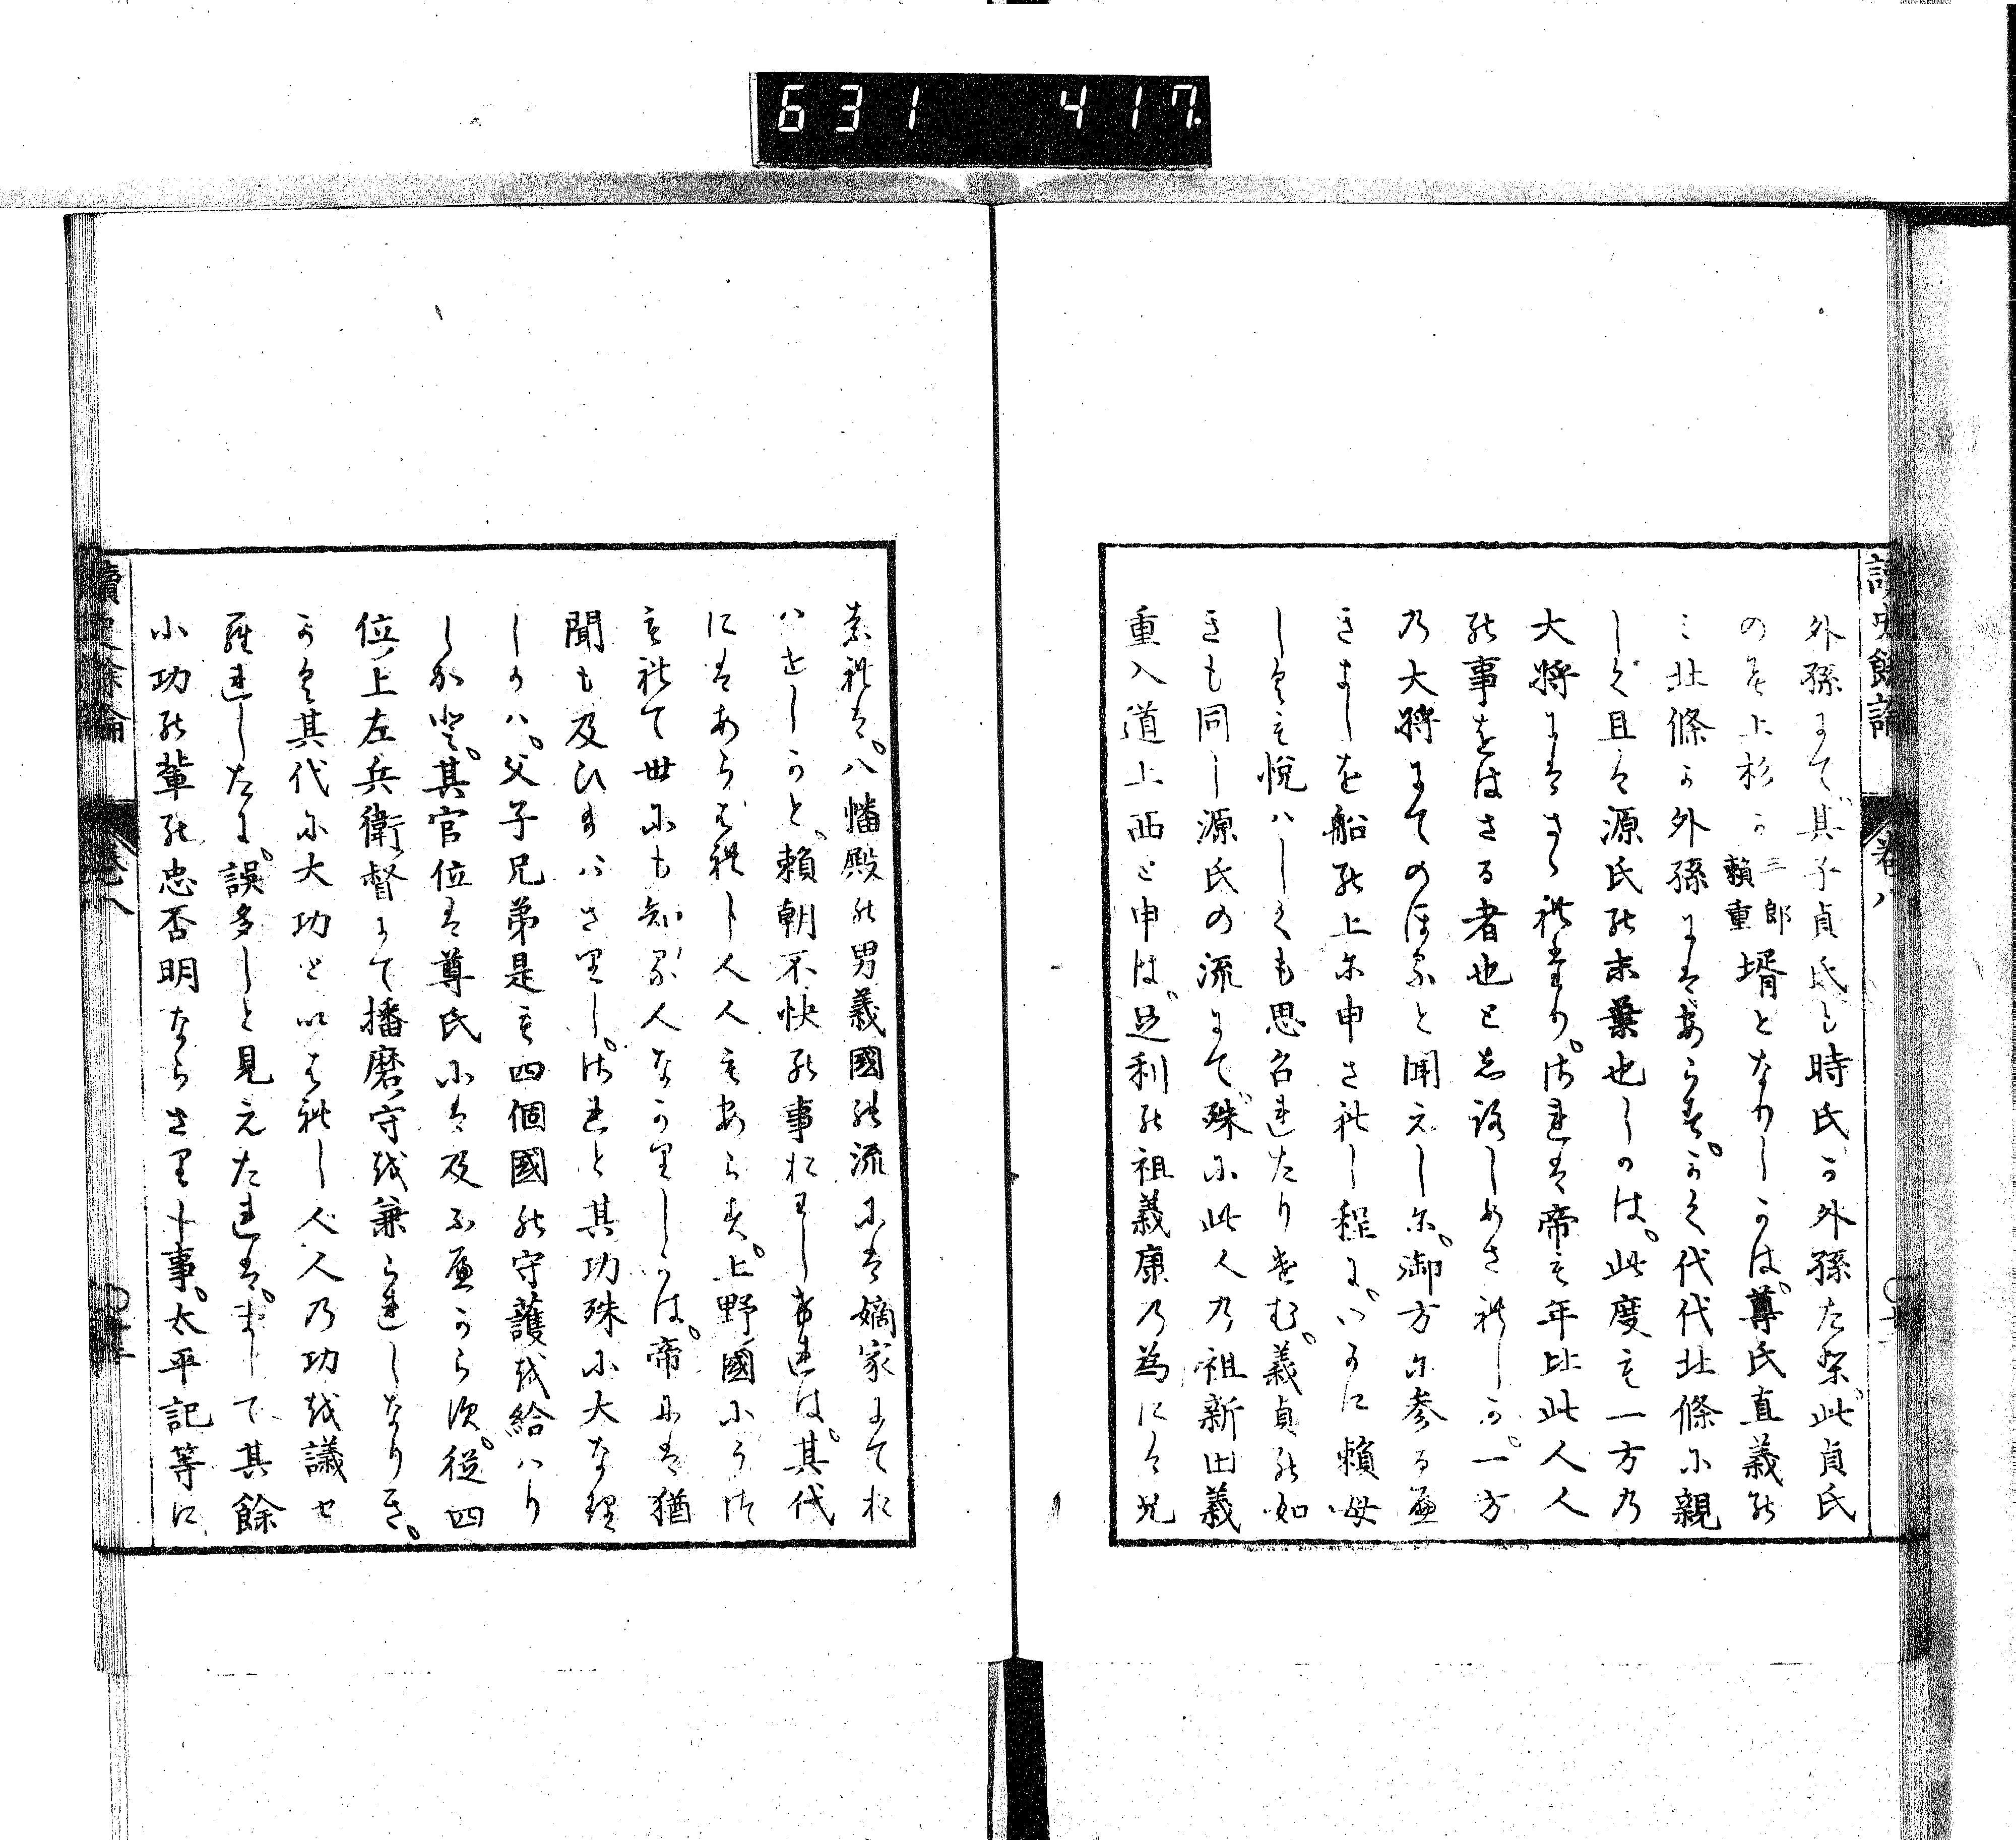 631 417.
讀史餘論 卷八
外孫にて其子貞氏も時氏か外孫たり此貞氏
のみ上杉か三郎頼重壻となりしかは尊氏直義の
ミ北條か外孫にはあらすかく代代北條に親
しく且は源氏の末葉也しかは此度も一方の
大將にはさゝれたりされは帝も年比此人人
の事をはさる者也としろしめされしか一方
の大將にてのほると聞えしに御方に參るへ
きよしを船の上に申されし程にいかに頼母
しくも悅はしくも思召れたりけむ義貞の如
きも同し源氏の流にて殊に此人の祖新田義
重入道上西と申は足利の祖義康の為には兄
なれは八幡殿の男義國の流には嫡家にてお
ハせしかと頼朝不快の事おはしけれは其代
にはあられし人人もあらす上野國にうつ
もれて世にも知る人なかりしかは帝には猶
聞も及ひ給ハさりしされと其功殊に大なり
しかハ父子兄弟是も四個國の守護を給ハり
しかと其官位は尊氏には及ふへからす從四
位上左兵衛督にて播磨守を兼られしなりき
かく其代に大功といはれし人人の功を議せ
られしたに誤多しと見えたれはまして其餘
小功の輩の忠否明ならさりし事太平記等に
讀史餘論 卷八